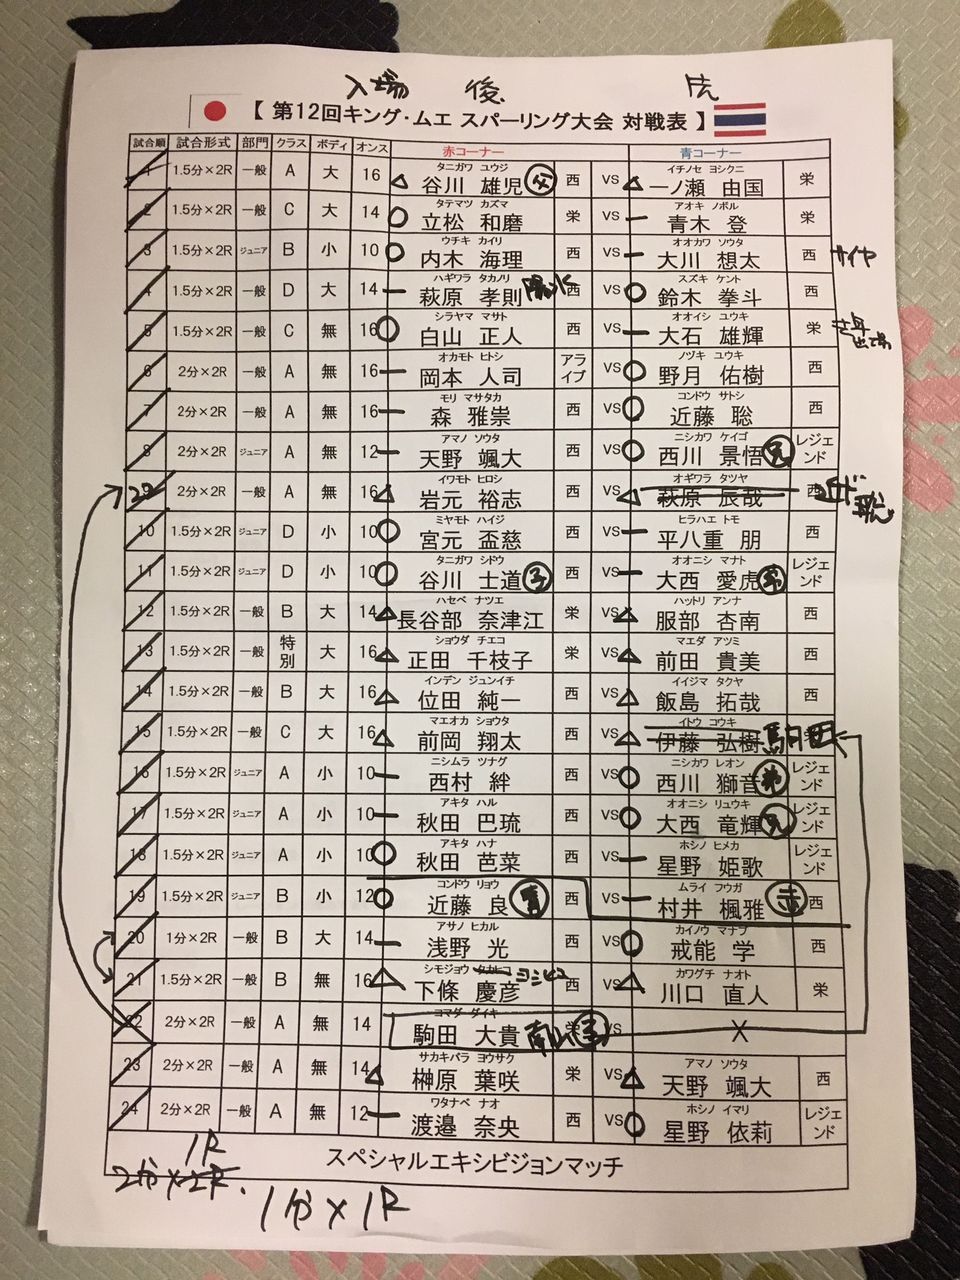 入場 後 先
【 第12回キング・ムエ スパーリング大会 対戦表 】
試合順 試合形式 部門 クラス ボディ オンス 赤コーナー 青コーナー
1 1.5分×2R 一般 A 大 16 タニガワ ユウジ 谷川 雄児 父 西 VS イチノセ ヨシクニ 一ノ瀬 由国 栄
2 1.5分×2R 一般 C 大 14 タテマツ カズマ 立松 和磨 栄 VS アオキ ノボル 青木 登 栄
3 1.5分×2R ジュニア B 小 10 ウチキ カイリ 内木 海理 西 VS オオカワ ソウタ 大川 想太 西 サイヤ
4 1.5分×2R 一般 D 大 14 ハギワラ タカノリ 萩原 孝則 西 VS スズキ ケント 鈴木 拳斗 西
5 1.5分×2R 一般 C 無 16 シラヤマ マサト 白山 正人 西 VS オオイシ ユウキ 大石 雄輝 栄
6 2分×2R 一般 A 無 16 オカモト ヒトシ 岡本 人司 アライブ VS ノヅキ ユウキ 野月 佑樹 西
7 2分×2R 一般 A 無 16 モリ マサタカ 森 雅崇 西 VS コンドウ サトシ 近藤 聡 西
8 2分×2R ジュニア A 無 12 アマノ ソウタ 天野 颯大 西 VS ニシカワ ケイゴ 西川 景悟 兄 レジェンド
22 2分×2R 一般 A 無 16 イワモト ヒロシ 岩元 裕志 西 VS オギワラ タツヤ 萩原 辰哉 西
10 1.5分×2R ジュニア D 小 10 ミヤモト ハイジ 宮元 盃慈 西 VS ヒラハエ トモ 平八重 朋 西
11 1.5分×2R ジュニア D 小 10 タニガワ シドウ 谷川 士道 子 西 VS オオニシ マナト 大西 愛虎 弟 レジェンド
12 1.5分×2R 一般 B 大 14 ハセベ ナツエ 長谷部 奈津江 栄 VS ハットリ アンナ 服部 杏南 西
13 1.5分×2R 一般 特別 大 16 ショウダ チエコ 正田 千枝子 栄 VS マエダ アツミ 前田 貴美 西
14 1.5分×2R 一般 B 大 16 インデン ジュンイチ 位田 純一 西 VS イイジマ タクヤ 飯島 拓哉 西
15 1.5分×2R 一般 C 大 16 マエオカ ショウタ 前岡 翔太 西 VS イトウ コウキ 伊藤 弘樹 駒田 栄
16 1.5分×2R ジュニア A 小 10 ニシムラ ツナグ 西村 絆 西 VS ニシカワ レオン 西川 獅音 弟 レジェンド
17 1.5分×2R ジュニア A 小 10 アキタ ハル 秋田 巴琉 西 VS オオニシ リュウキ 大西 竜輝 兄 レジェンド
18 1.5分×2R ジュニア A 小 10 アキタ ハナ 秋田 芭菜 西 VS ホシノ ヒメカ 星野 姫歌 レジェンド
19 1.5分×2R ジュニア B 小 12 コンドウ リョウ 近藤 良 青 西 VS ムライ フウガ 村井 楓雅 赤 西
20 1分×2R 一般 B 大 14 アサノ ヒカル 浅野 光 西 VS カイノウ マナブ 戒能 学 西
21 1.5分×2R 一般 B 無 16 シモジョウ タカヒコ ヨシヒコ 下條 慶彦 西 VS カワグチ ナオト 川口 直人 栄
22 2分×2R 一般 A 無 14 コマダ ダイキ 駒田 大貴 栄 VS X
23 2分×2R 一般 A 無 14 サカキバラ ヨウサク 榊原 葉咲 栄 VS アマノ ソウタ 天野 颯大 西
24 2分×2R 一般 A 無 12 ワタナベ ナオ 渡邉 奈央 西 VS ホシノ イマリ 星野 依莉 レジェンド
スペシャルエキシビジョンマッチ
1R
2分×2R.
1分×1R